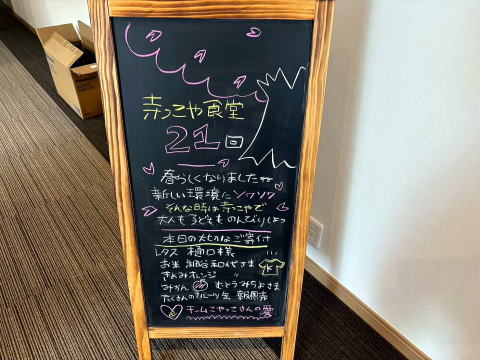 寺っこや食堂
21回
春らしくなりましたね
新しい環境にソワソワ
そんな時は寺っこやで
大人も子どもものんびりしよっ
本日の大切なご寄付
レタス 樋口様
お米 細谷和代さま
きよみオレンジ 〃
みかん むとうみちよさま
たくさんのフルーツ缶 報恩寺
チームこやっこさんの愛
K